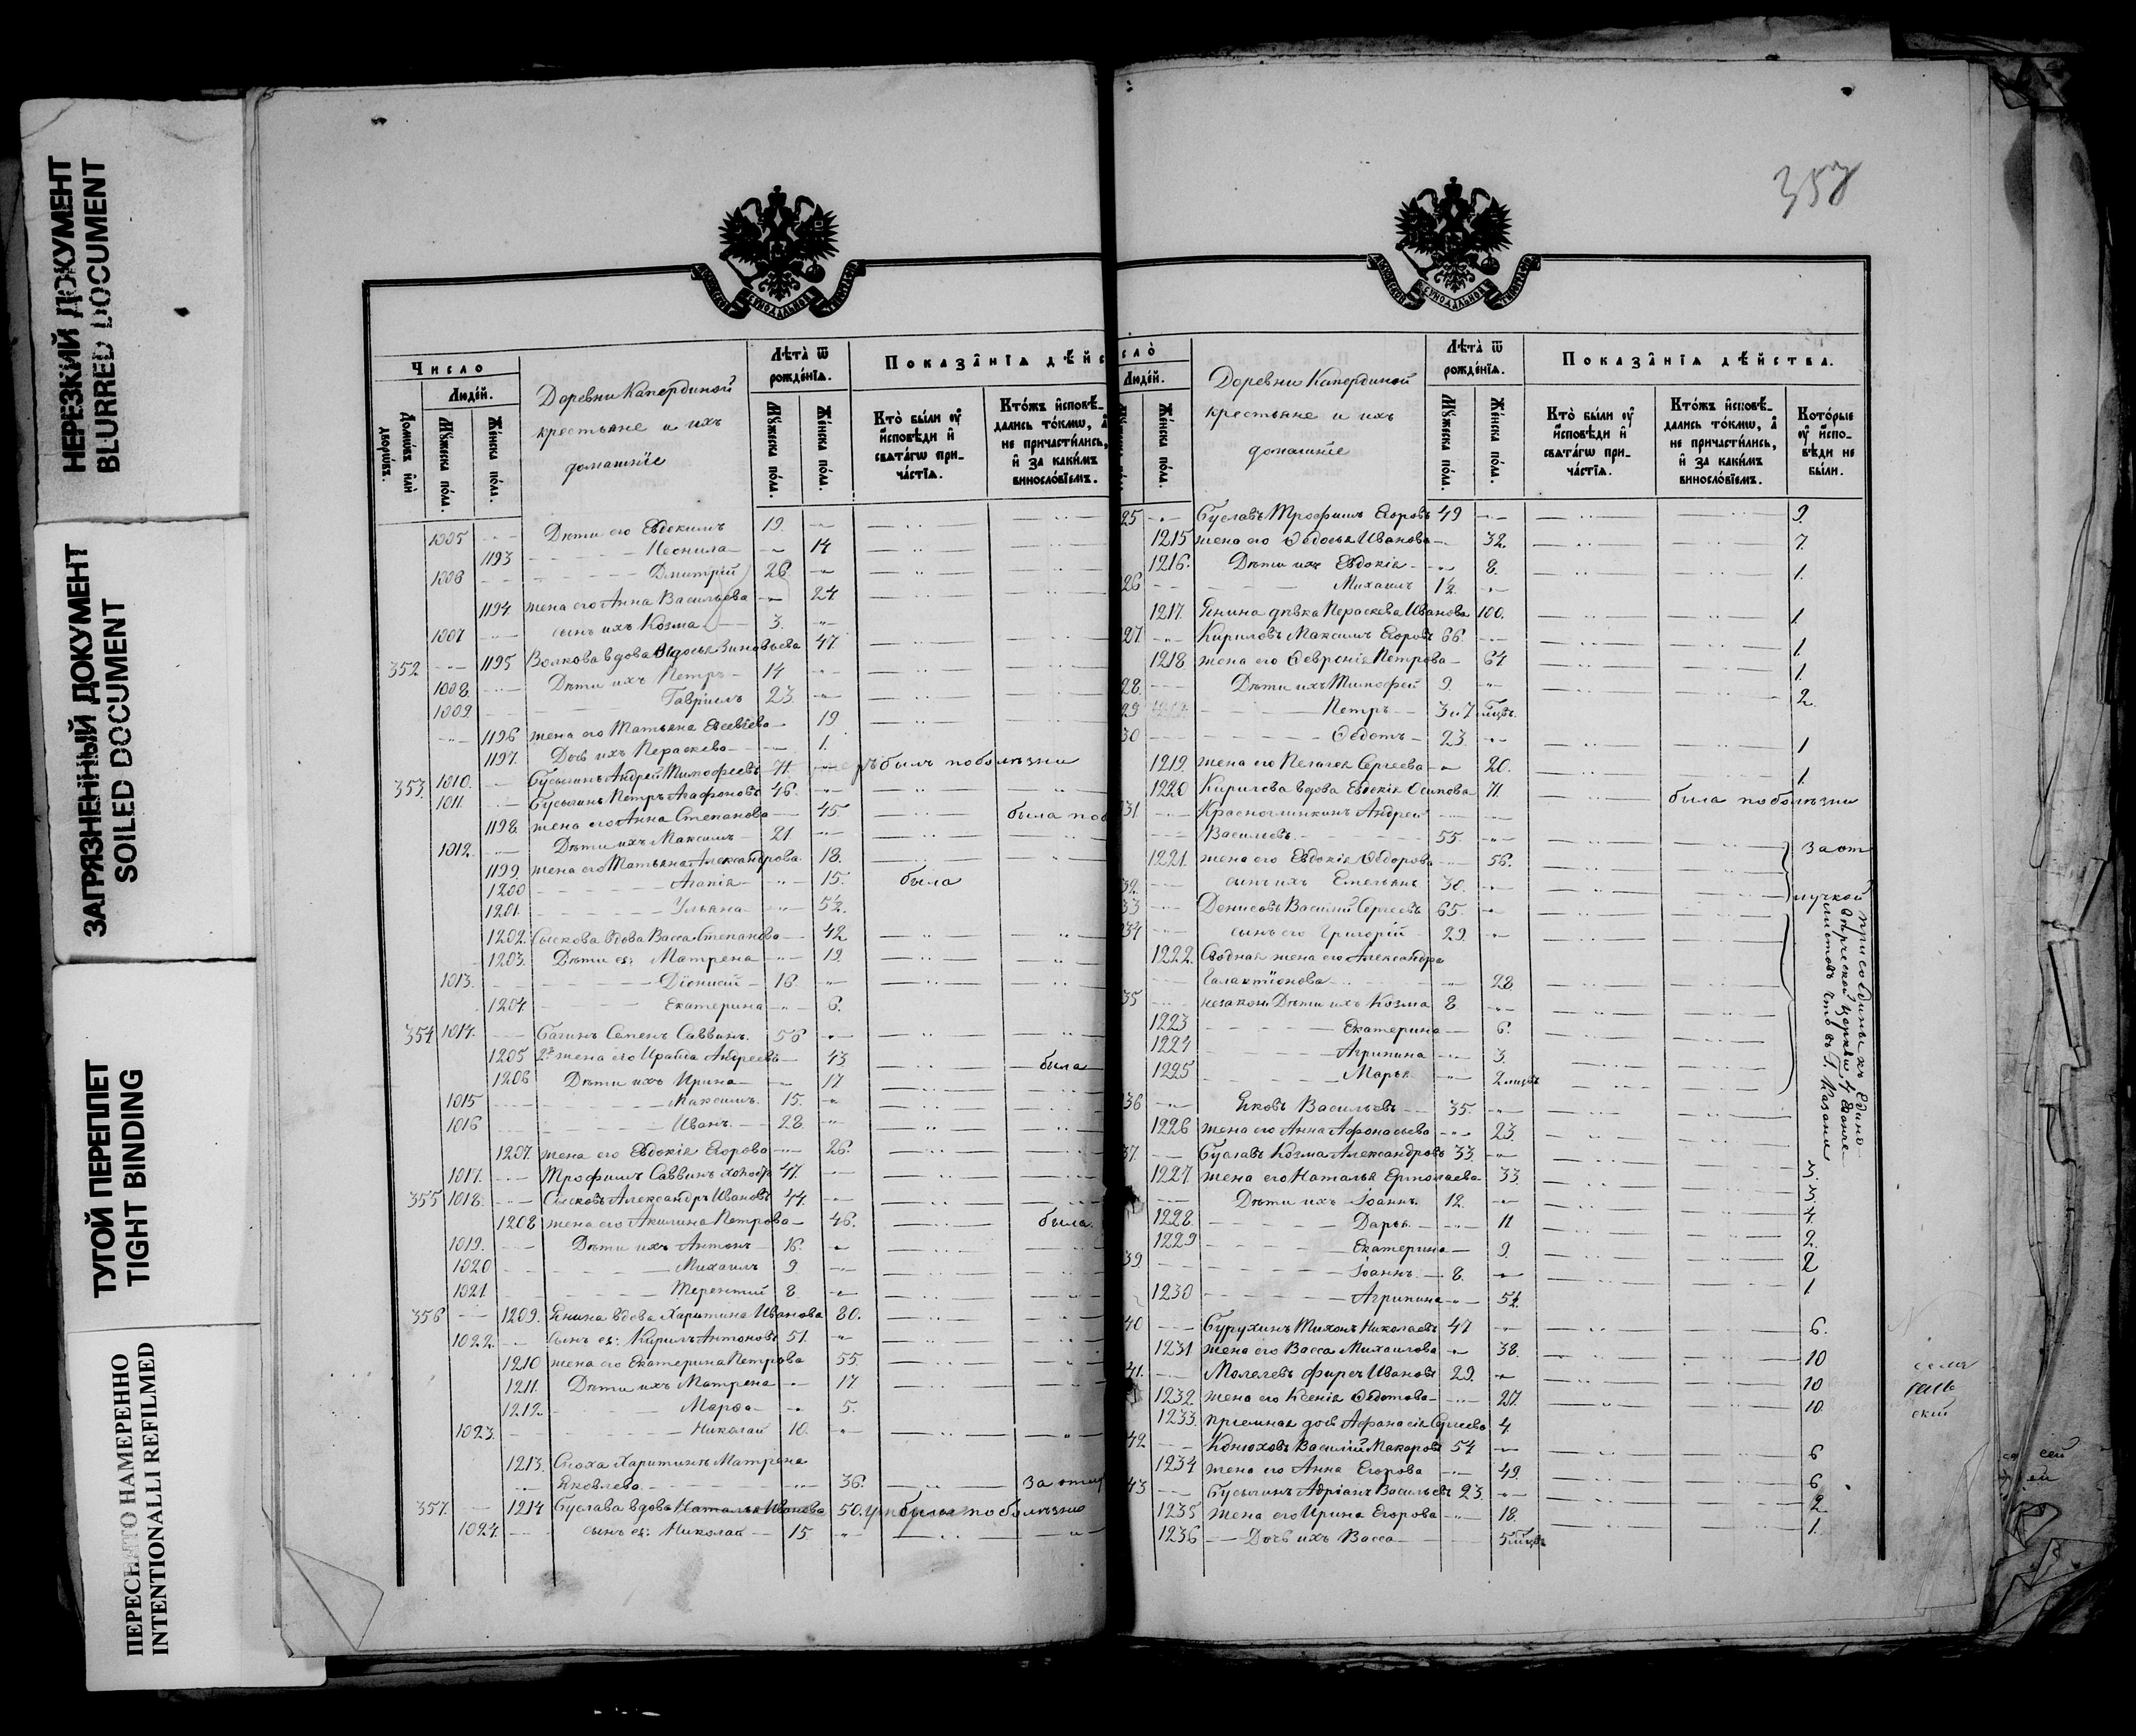 НЕРЕЗКИЙ ДОКУМЕНТ
BLURRED DOCUMENT
ЗАГРЯЗНЕННЫЙ ДОКУМЕНТ
SOILED DOCUMENT
ТУГОЙ ПЕРЕПЛЕТ
TIGHT BINDING
ПЕРЕСНЯТО НАМЕРЕННО
INTENTIONALLI REFILMED
Число
Людей.
Домѡвъ или дворѡвъ.
Мꙋжеска полꙋ.
Женска полꙋ.
Деревни Капердиной
крестьяне и ихъ
домашніе
Лѣта ѿ
рожденїѧ.
Мꙋжеска полꙋ.
Женска полꙋ.
Показанїѧ дѣйс
Кто были оу
исповѣди и
свѧтагѡ при-
частїѧ.
Ктожъ исповѣ-
дались токмѡ, а
не причастились,
и за какимъ
винословїемъ.
1005 Дѣти его Евдокимъ 19.
1193 Неонила 14
1006 Дмитрій 26.
1194 жена его Анна Васильева 24.
1007 сынъ ихъ Козма 3.
352 1195 Волкова вдова Ѳедосья Зиновьева 47.
1008. Дѣти ихъ Петръ 14
1009. Гавріилъ 23.
1196 жена его Татьяна Евсевіева 19
1197. Дочь ихъ Параскева 1.
353. 1010. Бусыгинъ Андрей Тимофеевъ 71. былъ по болѣзни
1011. Бусыгинъ Петръ Агафоновъ 46.
1198. жена его Анна Степанова 45. была по б
1012. Дѣти ихъ Максимъ 21.
1199. жена его Татьяна Александрова 18.
1200 Агапія 15. была
1201. Ульяна 5½.
1202. Сыскова вдова Васса Степанова 42
1203. Дѣти ея: Матрена 19.
1013. Діонисій 16.
1204. Екатерина 6.
354 1014. Багинъ Семенъ Саввинъ. 56
1205 2ꙗ жена его Ираида Андреева 43 была
1206 Дѣти ихъ Ирина 17
1015 Максимъ. 15.
1016 Иванъ. 28
1207. жена его Евдокія Егорова 26.
1017. Трофимъ Саввинъ холостъ 47.
355 1018. Сысковъ Александръ Ивановъ 44.
1208 жена его Акилина Петрова 46. была
1019. Дѣти ихъ Антонъ 16.
1020 Михаилъ 9
1021. Терентій 8.
356 1209. Янина вдова Харитина Иванова 80.
1022. сынъ ея: Кирилъ Антоновъ 51.
1210 жена его Екатерина Петрова 55.
1211. Дѣти ихъ Матрена 17
1212. Марѳа 5.
1023. Николай 10.
1213. Сноха Харитинъ Матрена
Яковлева 36. За отл
357. 1214 Буслава вдова Наталья Иванова 50. была по болѣзни
1024. сынъ ея: Николай 15
357
сло
Людей.
Женска полꙋ.
Деревни Капердиной
крестьяне и ихъ
домашніе
Лѣта ѿ
рожденїѧ.
Мꙋжеска полꙋ.
Женска полꙋ.
Показанїѧ дѣйства.
Кто были оу
исповѣди и
свѧтагѡ при-
частїѧ.
Ктожъ исповѣ-
дались токмѡ, а
не причастились,
и за какимъ
винословїемъ.
Которые
оу испо-
вѣди не
были.
25 Буславъ Трофимъ Егоровъ 49 9.
1215 жена его Ѳедосья Иванова 32. 7.
1216. Дѣти ихъ Евдокія 8. 1.
26 Михаилъ 1½.
1217. Янина дѣвка Параскева Иванова 100. 1.
27 Кириловъ Максимъ Егоровъ 66. 1.
1218. жена его Ѳевронія Петрова 64 1.
28. Дѣти ихъ Тимофей 9. 2.
29 Петръ 3 и 7 мцвъ.
30 Ѳедотъ 23. 1
1219. жена его Пелагея Сергеева 20. 1.
1220 Кирилова вдова Евдокія Осипова 71 была по болѣзни
31 Красноглинкинъ Андрей
Василевъ. 55. За от
1221. жена его Евдокія Ѳедорова 56.
32. сынъ ихъ Емельянъ 30. лучкой
33 Денисовъ Василій Сергеевъ 65.
34 сынъ его Григорій 29.
1222. Сводная жена его Александра
Галактіонова 28
35 незакон. Дѣти ихъ Козма 8.
1223 Екатерина 6.
1224 Агрипина 3.
1225 Марья 2 мцвъ
присоединены къ Едино-
вѣрческой церкви 4 Еванге-
листовъ что въ Г. Казани
36 Яковъ Васильевъ 35.
1226 жена его Анна Афонасьева 23.
37. Буславъ Козма Александровъ 33. 3.
1227. жена его Наталья Ермолаева 33. 3.
Дѣти ихъ Іоаннъ. 12. 4.
1228. Дарья 11 2.
1229 Екатерина 9. 2
39 Іоаннъ. 8. 1
1230 Агрипина 5½.
40 Бурухинъ Тихонъ Николаевъ 47 6.
1231 жена его Васса Михаилова 38. 10
41. Ивановъ 29. 10
1232 жена его Ксенія Ѳедотова 27. 10.
1233. приемная дочь Афанасія Сергеева 4.
42 Конюховъ Василій Макаровъ 54 6
1234 жена его Анна Егорова 49. 6
43 Бусыгинъ Адріанъ Васильевъ 23. 2
1235 жена его Ирина Егорова 18. 1.
1236 Дочь ихъ Васса 5 мцвъ